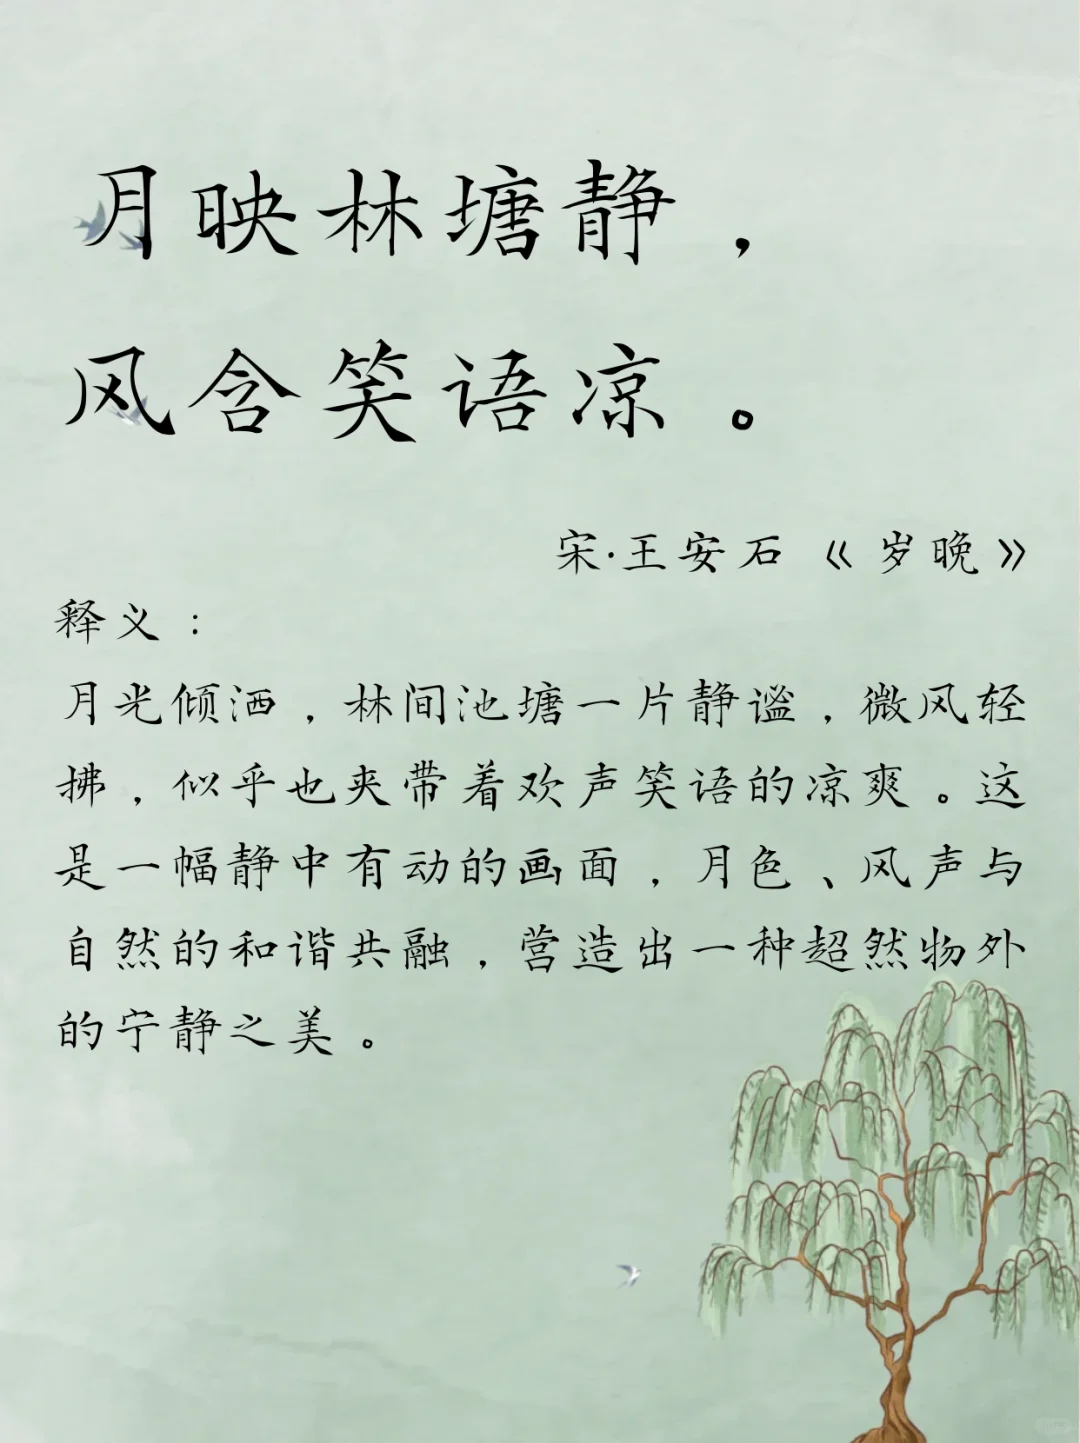 月映林塘静，
风含笑语凉。
宋·王安石《岁晚》
释义：
月光倾洒，林间池塘一片静谧，微风轻
拂，似乎也夹带着欢声笑语的凉爽。这
是一幅静中有动的画面，月色、风声与
自然的和谐共融，营造出一种超然物外
的宁静之美。